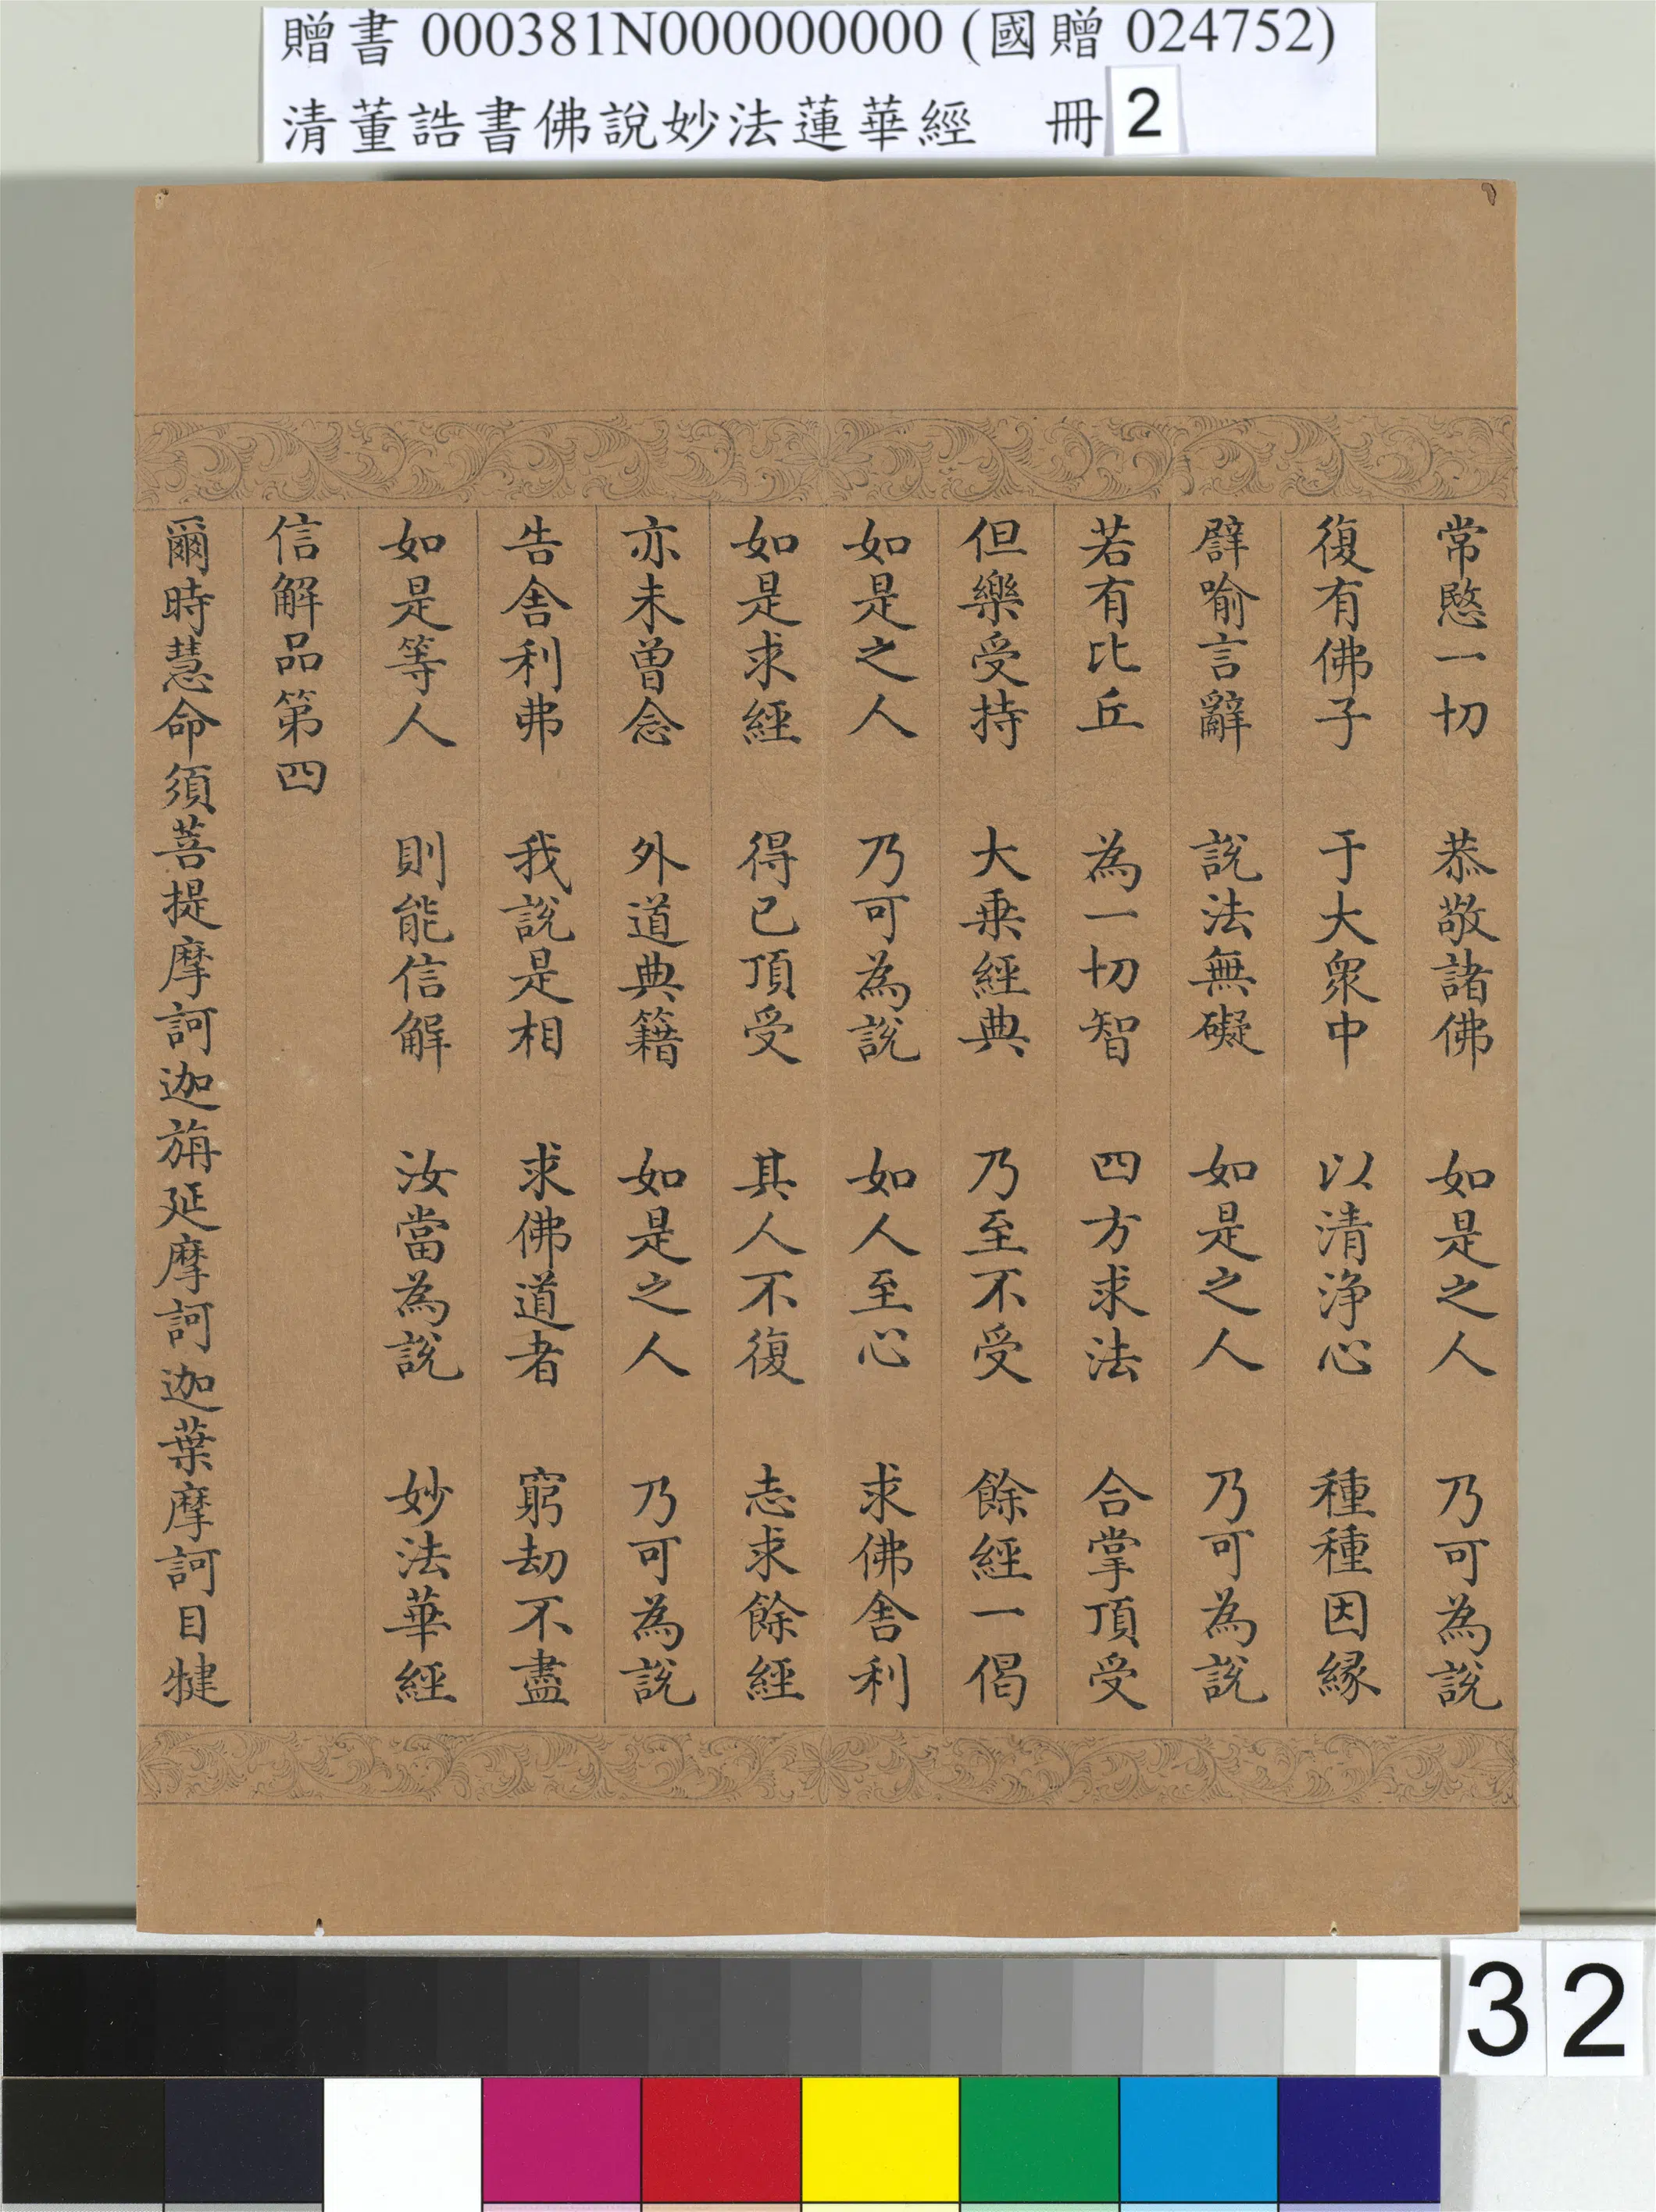 贈書 000381N000000000 (國贈 024752)
清董誥書佛說妙法蓮華經 冊 2
常愍一切 恭敬諸佛 如是之人 乃可為說
復有佛子 于大衆中 以清淨心 種種因緣
譬喻言辭 說法無礙 如是之人 乃可為說
若有比丘 為一切智 四方求法 合掌頂受
但樂受持 大乘經典 乃至不受 餘經一偈
如是之人 乃可為說 如人至心 求佛舍利
如是求經 得已頂受 其人不復 志求餘經
亦未曾念 外道典籍 如是之人 乃可為說
告舍利弗 我說是相 求佛道者 窮劫不盡
如是等人 則能信解 汝當為說 妙法華經
信解品第四
爾時慧命須菩提摩訶迦旃延摩訶迦葉摩訶目犍
32